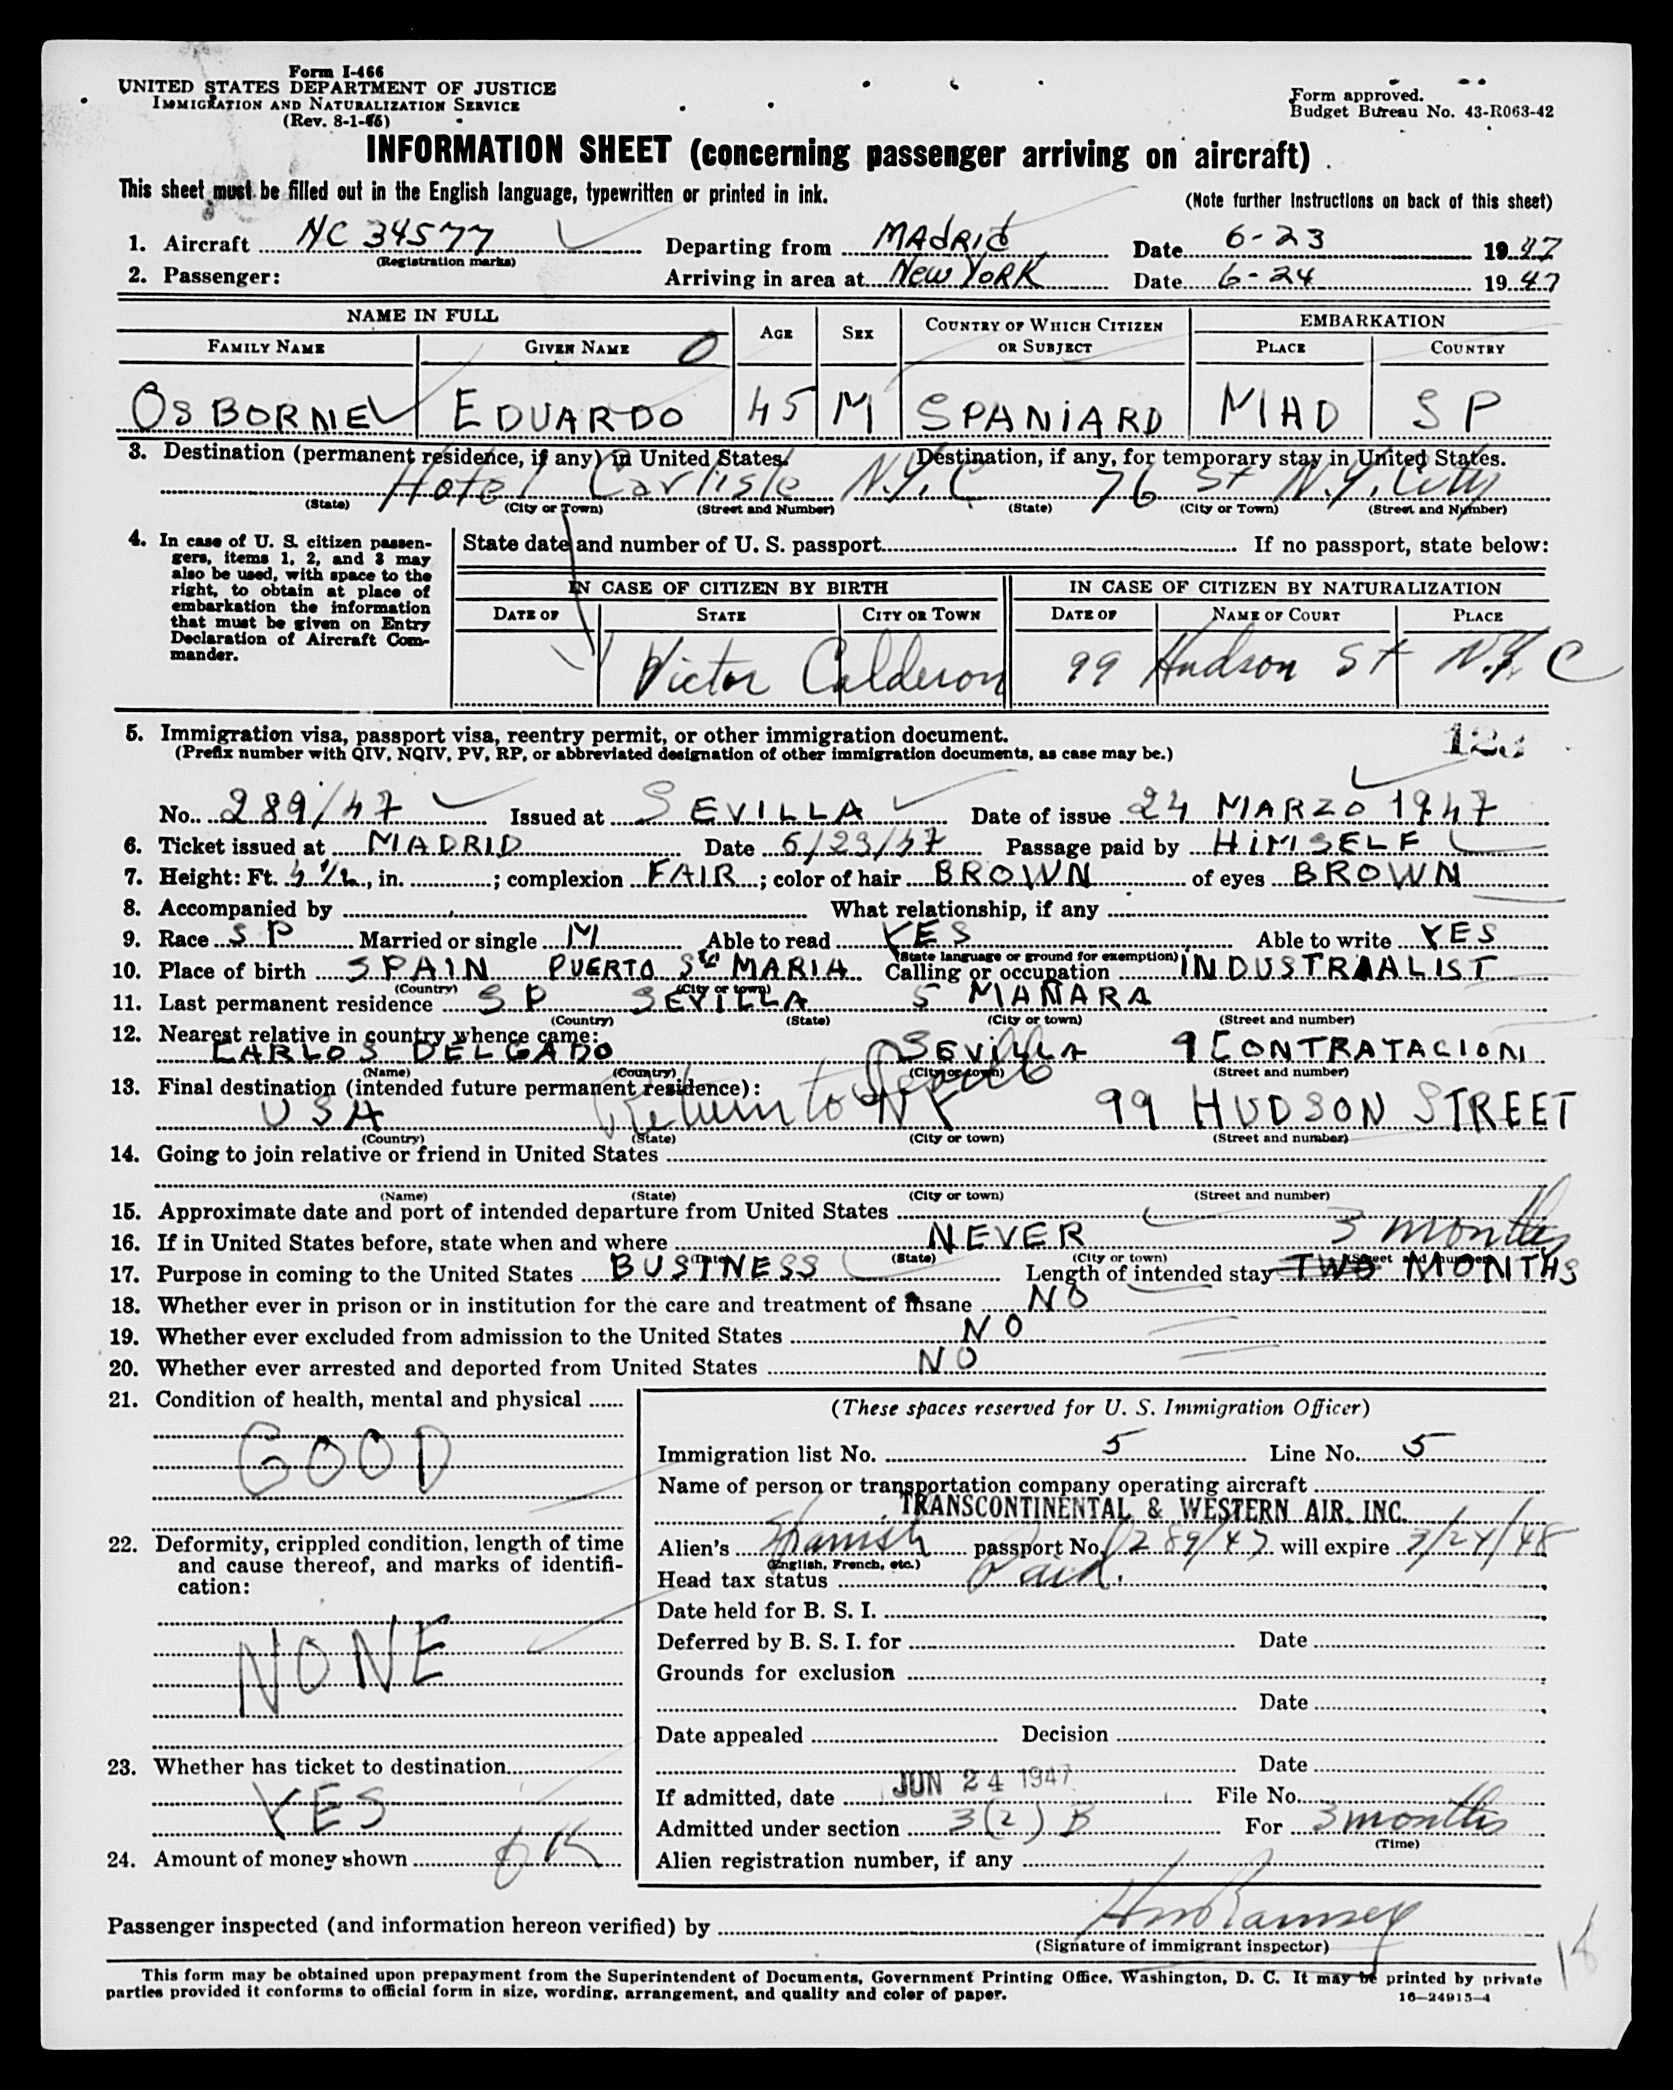 Form I-466
UNITED STATES DEPARTMENT OF JUSTICE
IMMIGRATION AND NATURALIZATION SERVICE
(Rev. 8-1-46)
Form approved.
Budget Bureau No. 43-R063-42
INFORMATION SHEET (concerning passenger arriving on aircraft)
This sheet must be filled out in the English language, typewritten or printed in ink.
(Note further Instructions on back of this sheet)
1. Aircraft NC 34577 Departing from MADRID Date 6-23 1947
(Registration marks)
2. Passenger: Arriving in area at New YORK Date 6-24 1947
NAME IN FULL AGE SEX COUNTRY OF WHICH CITIZEN OR SUBJECT EMBARKATION
FAMILY NAME GIVEN NAME O PLACE COUNTRY
OSBORNE EDUARDO 45 M SPANIARD MAD SP
3. Destination (permanent residence, if any) in United States. Destination, if any, for temporary stay in United States.
Hotel Carlisle N.Y.C 76 St N.Y. City
(State) (City or Town) (Street and Number) (State) (City or Town) (Street and Number)
4. In case of U. S. citizen passengers, items 1, 2, and 3 may also be used, with space to the right, to obtain at place of embarkation the information that must be given on Entry Declaration of Aircraft Commander.
State date and number of U. S. passport If no passport, state below:
IN CASE OF CITIZEN BY BIRTH IN CASE OF CITIZEN BY NATURALIZATION
DATE OF STATE CITY OR TOWN DATE OF NAME OF COURT PLACE
Victor Calderon 99 Hudson St N.Y.C
5. Immigration visa, passport visa, reentry permit, or other immigration document.
(Prefix number with QIV, NQIV, PV, RP, or abbreviated designation of other immigration documents, as case may be.)
No. 289/47 Issued at SEVILLA Date of issue 24 MARZO 1947
6. Ticket issued at MADRID Date 6/23/47 Passage paid by HIMSELF
7. Height: Ft. 5 1/2, in. ; complexion FAIR ; color of hair BROWN of eyes BROWN
8. Accompanied by What relationship, if any
9. Race SP Married or single M Able to read YES Able to write YES
(State language or ground for exemption)
10. Place of birth SPAIN PUERTO Sta MARIA Calling or occupation INDUSTRIALIST
(Country) (City or town)
11. Last permanent residence SP SEVILLA 5 MAÑARA
(Country) (State) (City or town) (Street and number)
12. Nearest relative in country whence came:
CARLOS DELGADO SEVILLA 9 CONTRATACION
(Name) (Country) (City or town) (Street and number)
13. Final destination (intended future permanent residence):
Return to Spain
USA NY 99 HUDSON STREET
(Country) (State) (City or town) (Street and number)
14. Going to join relative or friend in United States
(Name) (State) (City or town) (Street and number)
15. Approximate date and port of intended departure from United States 3 months
16. If in United States before, state when and where NEVER
(Date) (State) (City or town) (Street and number)
17. Purpose in coming to the United States BUSINESS Length of intended stay TWO MONTHS
18. Whether ever in prison or in institution for the care and treatment of insane NO
19. Whether ever excluded from admission to the United States NO
20. Whether ever arrested and deported from United States NO
21. Condition of health, mental and physical
GOOD
22. Deformity, crippled condition, length of time and cause thereof, and marks of identification:
NONE
23. Whether has ticket to destination
YES
24. Amount of money shown OK
(These spaces reserved for U. S. Immigration Officer)
Immigration list No. 5 Line No. 5
Name of person or transportation company operating aircraft
TRANSCONTINENTAL & WESTERN AIR, INC.
Alien's Spanish passport No. 289/47 will expire 3/24/48
(English, French, etc.)
Head tax status Paid.
Date held for B. S. I.
Deferred by B. S. I. for Date
Grounds for exclusion
Date
Date appealed Decision
Date
If admitted, date JUN 24 1947 File No.
Admitted under section 3(2) B For 3 months
(Time)
Alien registration number, if any
Passenger inspected (and information hereon verified) by
(Signature of immigrant inspector)
This form may be obtained upon prepayment from the Superintendent of Documents, Government Printing Office, Washington, D. C. It may be printed by private
parties provided it conforms to official form in size, wording, arrangement, and quality and color of paper.
16—24915-4